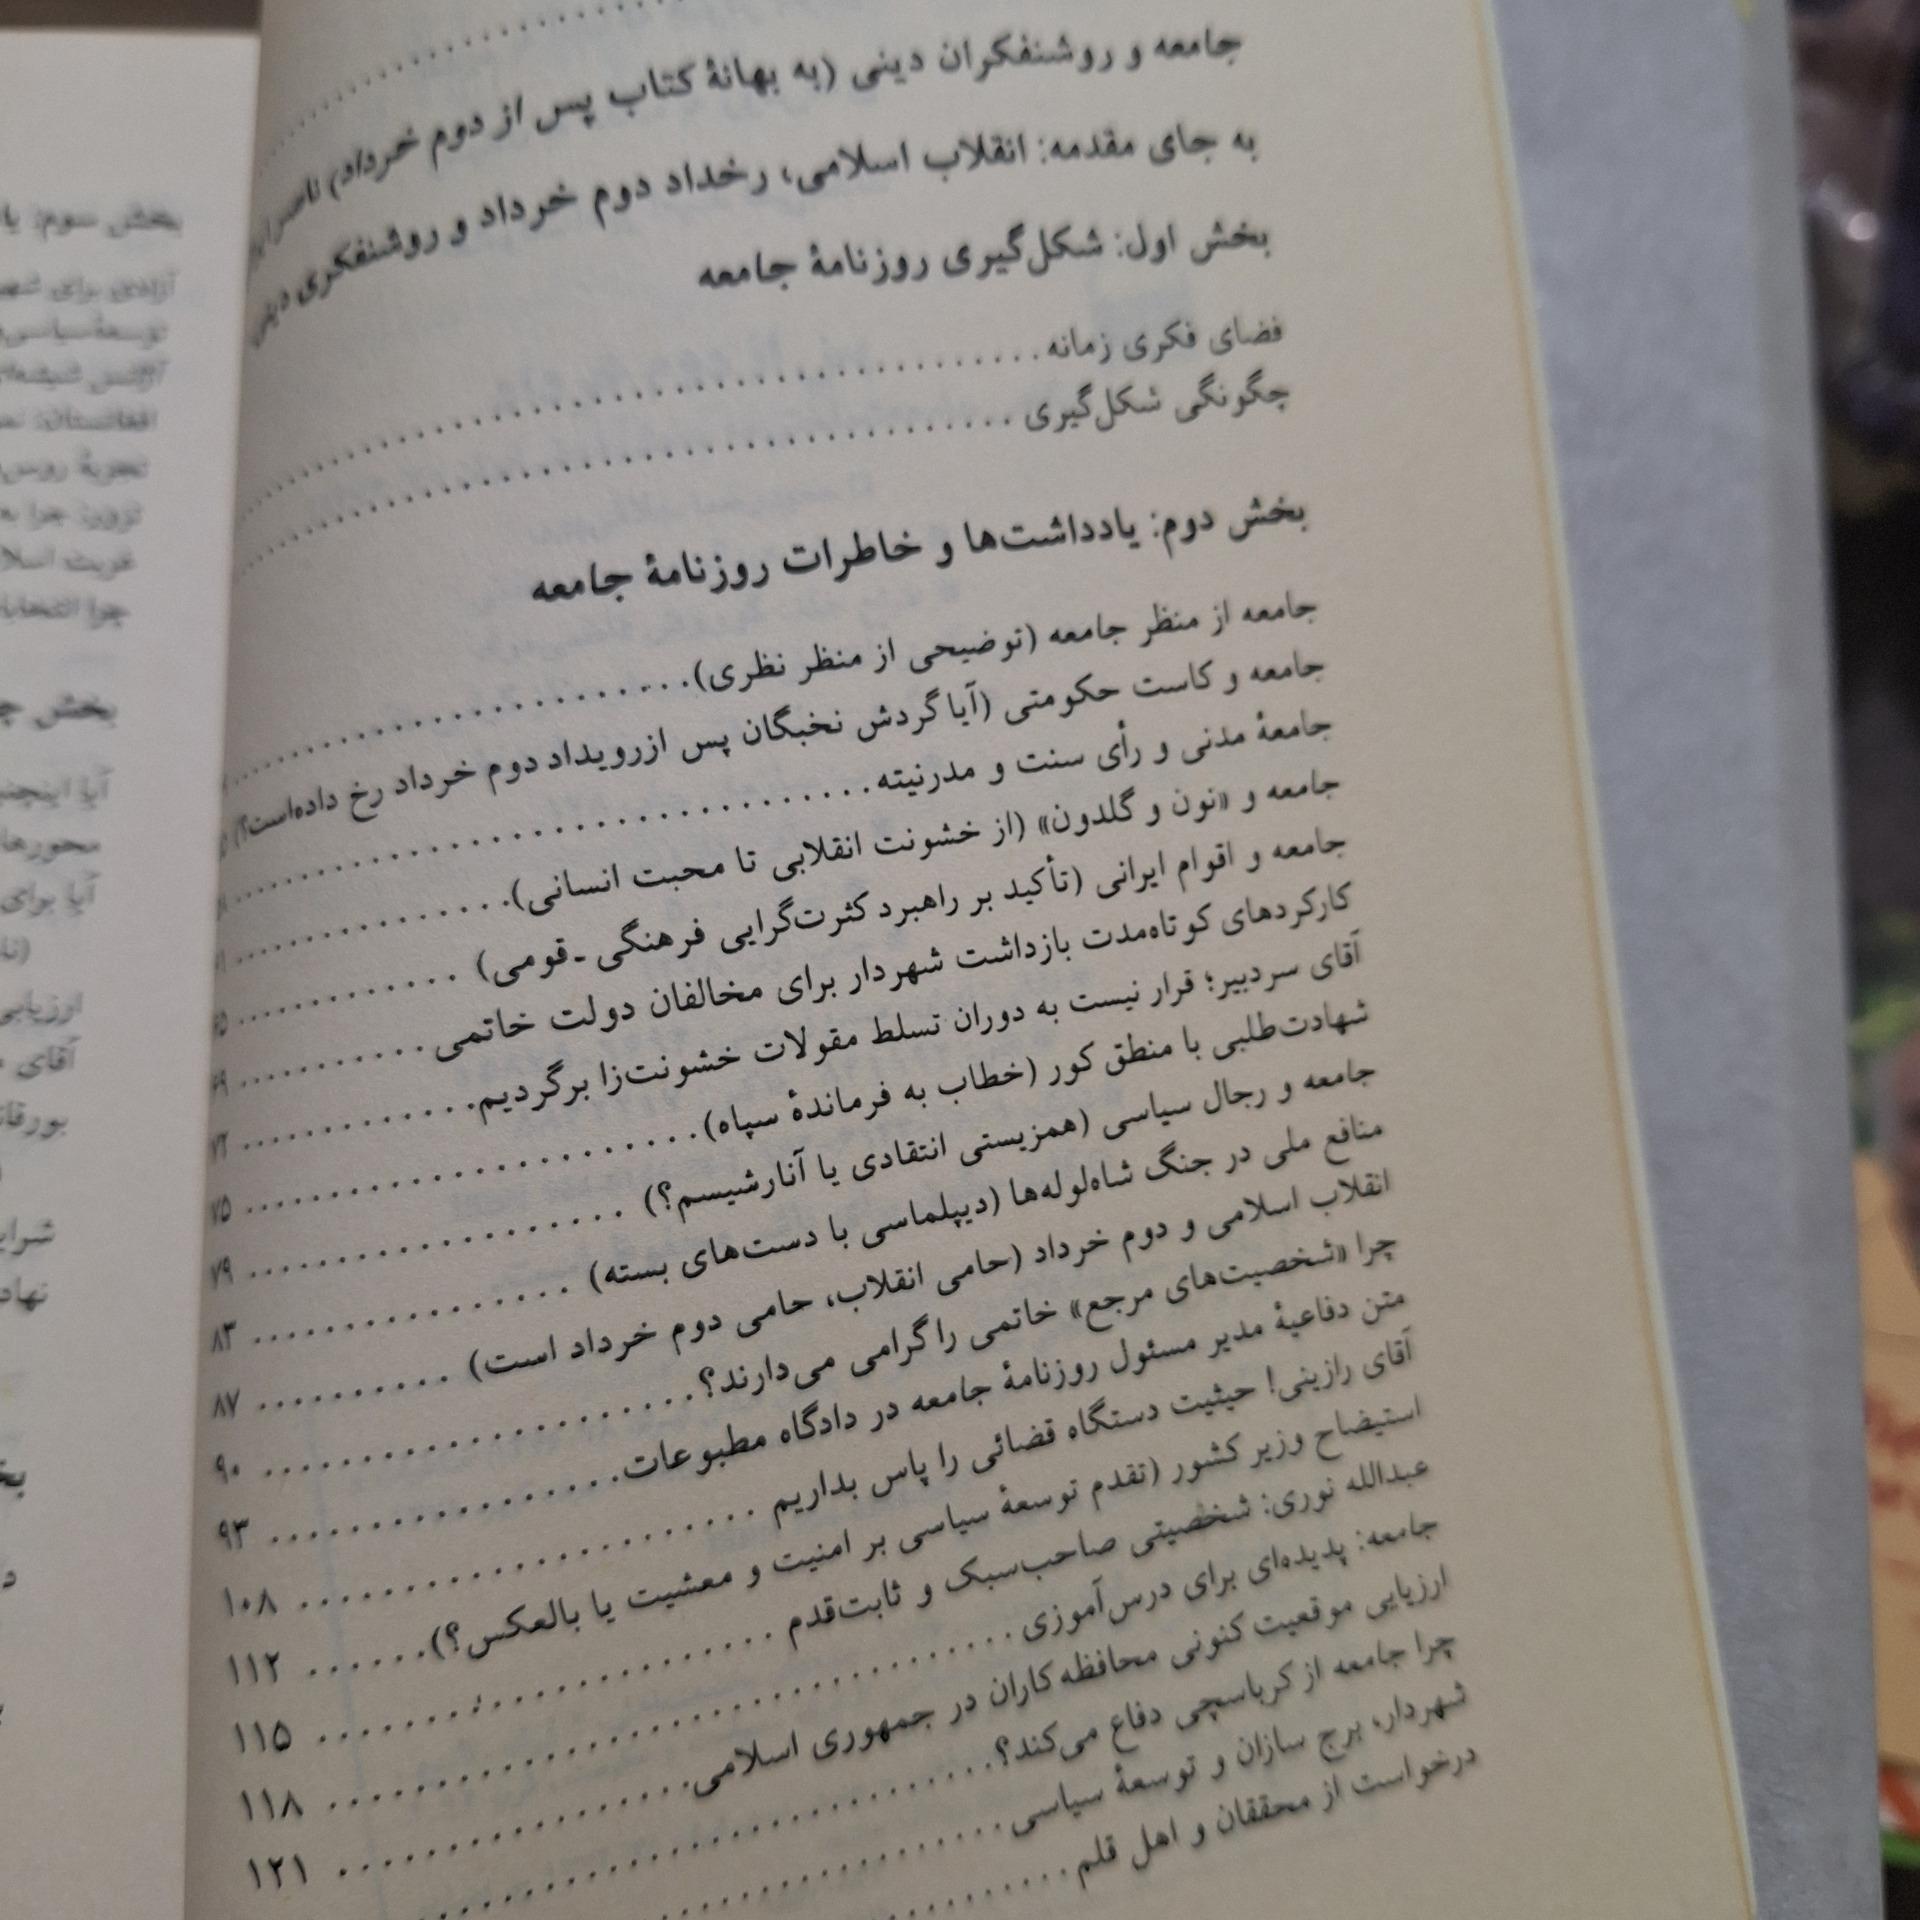 جامعه و روشنفکران دینی (به بهانهٔ کتاب پس از دوم خرداد) ناصر
به جای مقدمه: انقلاب اسلامی، رخداد دوم خرداد و روشنفکری دینی
بخش اول: شکل‌گیری روزنامهٔ جامعه
فضای فکری زمانه
چگونگی شکل‌گیری
بخش دوم: یادداشت‌ها و خاطرات روزنامهٔ جامعه
جامعه از منظر جامعه (توضیحی از منظر نظری)
جامعه و کاست حکومتی (آیا گردش نخبگان پس از رویداد دوم خرداد رخ داده‌است؟)
جامعهٔ مدنی و رأی سنت و مدرنیته
جامعه و «نون و گلدون» (از خشونت انقلابی تا محبت انسانی)
جامعه و اقوام ایرانی (تأکید بر راهبرد کثرت‌گرایی فرهنگی ـ قومی)
کارکردهای کوتاه‌مدت بازداشت شهردار برای مخالفان دولت خاتمی
آقای سردبیر؛ قرار نیست به دوران تسلط مقولات خشونت‌زا برگردیم ۷۲
شهادت‌طلبی با منطق کور (خطاب به فرماندهٔ سپاه) ۷۵
جامعه و رجال سیاسی (همزیستی انتقادی یا آنارشیسم؟) ۷۹
منافع ملی در جنگ شاه‌لوله‌ها (دیپلماسی با دست‌های بسته) ۸۳
انقلاب اسلامی و دوم خرداد (حامی انقلاب، حامی دوم خرداد است) ۸۷
چرا «شخصیت‌های مرجع» خاتمی را گرامی می‌دارند؟ ۹۰
متن دفاعیهٔ مدیر مسئول روزنامهٔ جامعه در دادگاه مطبوعات ۹۳
آقای رازینی! حیثیت دستگاه قضائی را پاس بداریم ۱۰۸
استیضاح وزیر کشور (تقدم توسعهٔ سیاسی بر امنیت و معشیت یا بالعکس؟) ۱۱۲
عبدالله نوری: شخصیتی صاحب‌سبک و ثابت‌قدم ۱۱۵
جامعه: پدیده‌ای برای درس‌آموزی ۱۱۸
ارزیابی موقعیت کنونی محافظه‌کاران در جمهوری اسلامی ۱۲۱
چرا جامعه از کرباسچی دفاع می‌کند؟
شهردار، برج سازان و توسعهٔ سیاسی
درخواست از محققان و اهل قلم
بخش سوم:
آزادی برای
توسعهٔ سیاسی
افغانستان:
تجربهٔ
چرا
بخش
آیا
محورها
آیا برای
ارزیابی
آقای